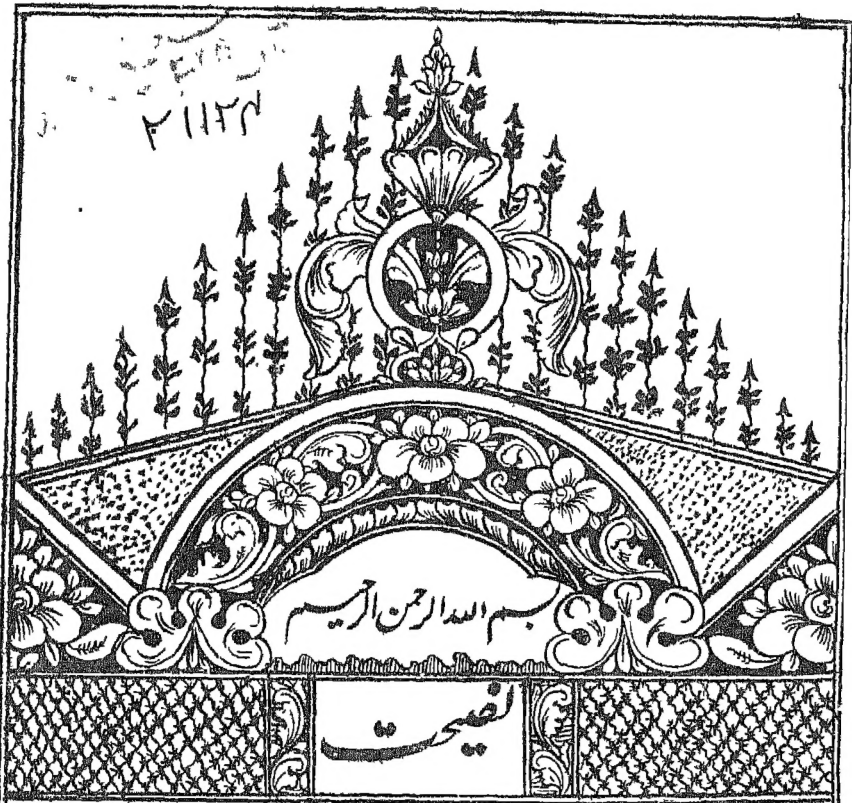 ۲۱۱۲۴
بسم الله الرحمن الرحیم
نصیحت